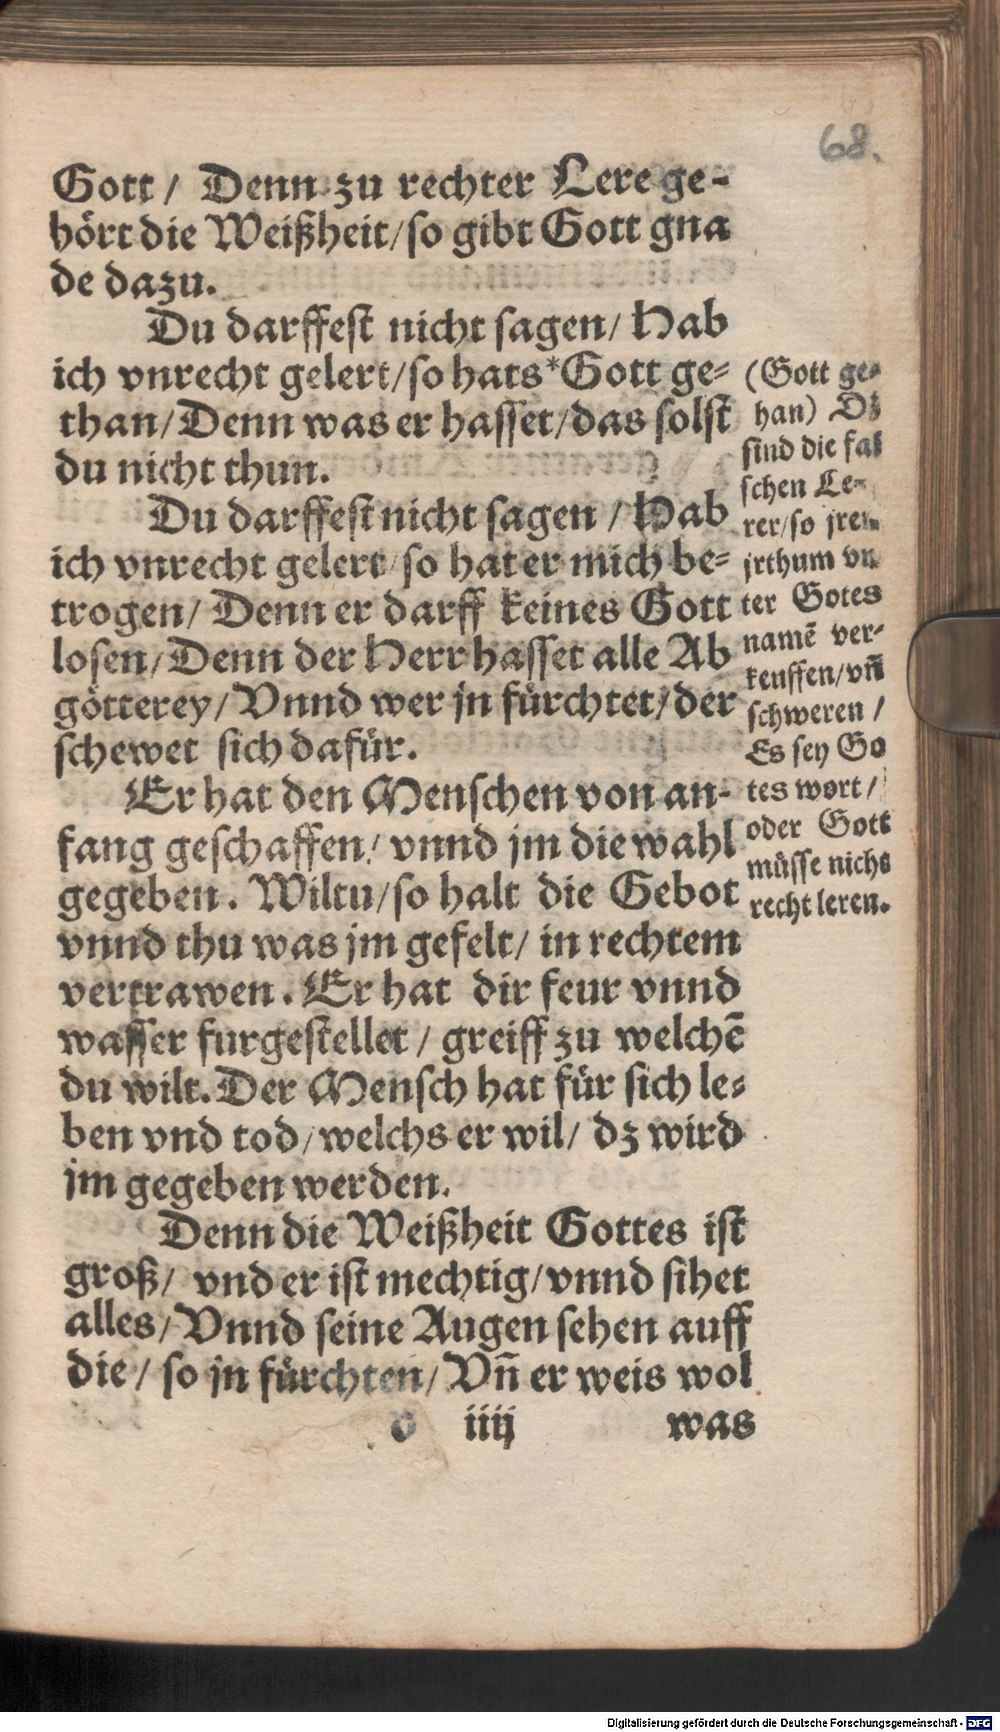 68.
Gott / Denn zu rechter Lere ge-
hört die Weißheit / so gibt Gott gna
de dazu.
Du darffest nicht sagen / Hab
ich vnrecht gelert / so hats * Gott ge-
than / Denn was er hasset / das solst
du nicht thun.
Du darffest nicht sagen / Hab
ich vnrecht gelert / so hat er mich be-
trogen / Denn er darff keines Gott
losen / Denn der Herr hasset alle Ab
götterey / Vnnd wer jn fürchtet / der
schewet sich dafür.
Er hat den Menschen von an-
fang geschaffen / vnnd jm die wahl
gegeben. Wiltu / so halt die Gebot
vnnd thu was jm gefelt / in rechtem
vertrawen. Er hat dir feur vnnd
wasser furgestellet / greiff zu welchē
du wilt. Der Mensch hat für sich le-
ben vnd tod / welchs er wil / dz wird
jm gegeben werden.
Denn die Weißheit Gottes ist
groß / vnd er ist mechtig / vnnd sihet
alles / Vnnd seine Augen sehen auff
die / so jn fürchten / Vn̄ er weis wol
o iiij was
(Gott ge-
han) Dz
sind die fal
schen Le-
rer / so jren
jrthum vn
ter Gotes
namē ver-
keuffen / vn̄
schweren /
Es sey Go
tes wort /
oder Gott
müsse nichs
recht leren.
Digitalisierung gefördert durch die Deutsche Forschungsgemeinschaft - DFG